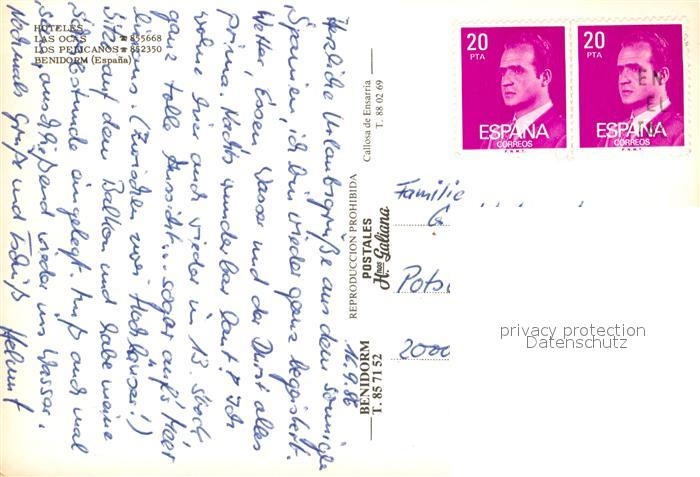 HOTELES
LAS OCAS ☎ 855668
LOS PELICANOS ☎ 852350
BENIDORM (España)
16.9.86
Herzliche Urlaubsgrüße aus dem sonnigen
Spanien, ich bin wieder ganz begeistert.
Wetter, Essen Wasser und der Durst alles
prima. Nachts wunderbar laut! Ich
wohne hier auch wieder im 13. Stock
ganz tolle Aussicht... sogar auf's Meer
hinaus. (Zwischen zwei Hochhäuser!)
Sitze auf dem Balkon und habe meine
Stunde eingelegt. Muß auch mal
sein, anschließend wieder ins Wasser.
Nochmals Grüße und Tschüß Helmut
BENIDORM
T. 85 71 52
POSTALES
Hnos Galiana
REPRODUCCION PROHIBIDA
Callosa de Ensarria
T. 88 02 69
20
PTA
ESPAÑA
CORREOS
F.N.M.T.
20
PTA
ESPAÑA
CORREOS
F.N.M.T.
Familie
Pots
2000
privacy protection
Datenschutz